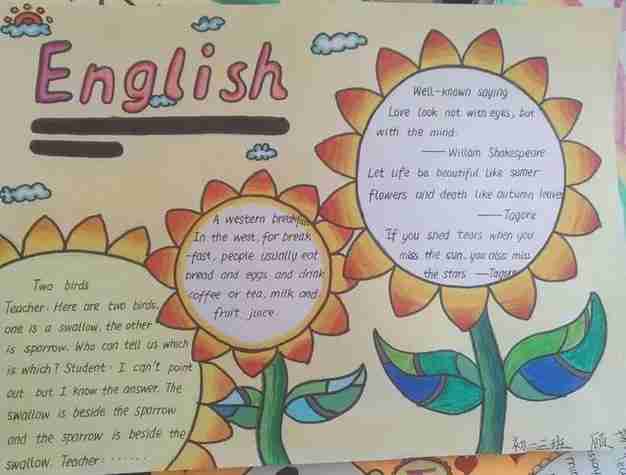 English
Well-known saying
Love look not with eyes, but
with the mind.
—— Willam Shakespeare
Let life be beautiful like sumer
flowers and death like autumn leaves
—— Tagore
If you shed tears when you
miss the sun, you also miss
the stars —Tagore
A western breakfast
In the west, for break
-fast, people usually eat
bread and eggs and drink
coffee or tea, milk and
fruit juice.
Two birds
Teacher: Here are two birds,
one is a swallow, the other
is sparrow. Who can tell us which
is which? Student: I can't point
out but I know the answer. The
swallow is beside the sparrow
and the sparrow is beside the
swallow. Teacher: ······
初一三班 顾